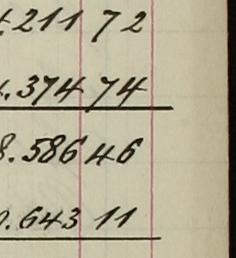 .211 72
.374 74
8.586 46
.643 11